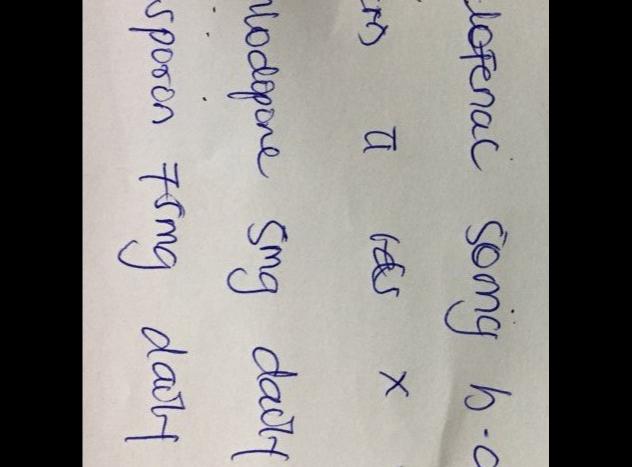 lofenac 50mg b.d
ii tds x
mlodopine 5mg daily
sporon 75mg daily